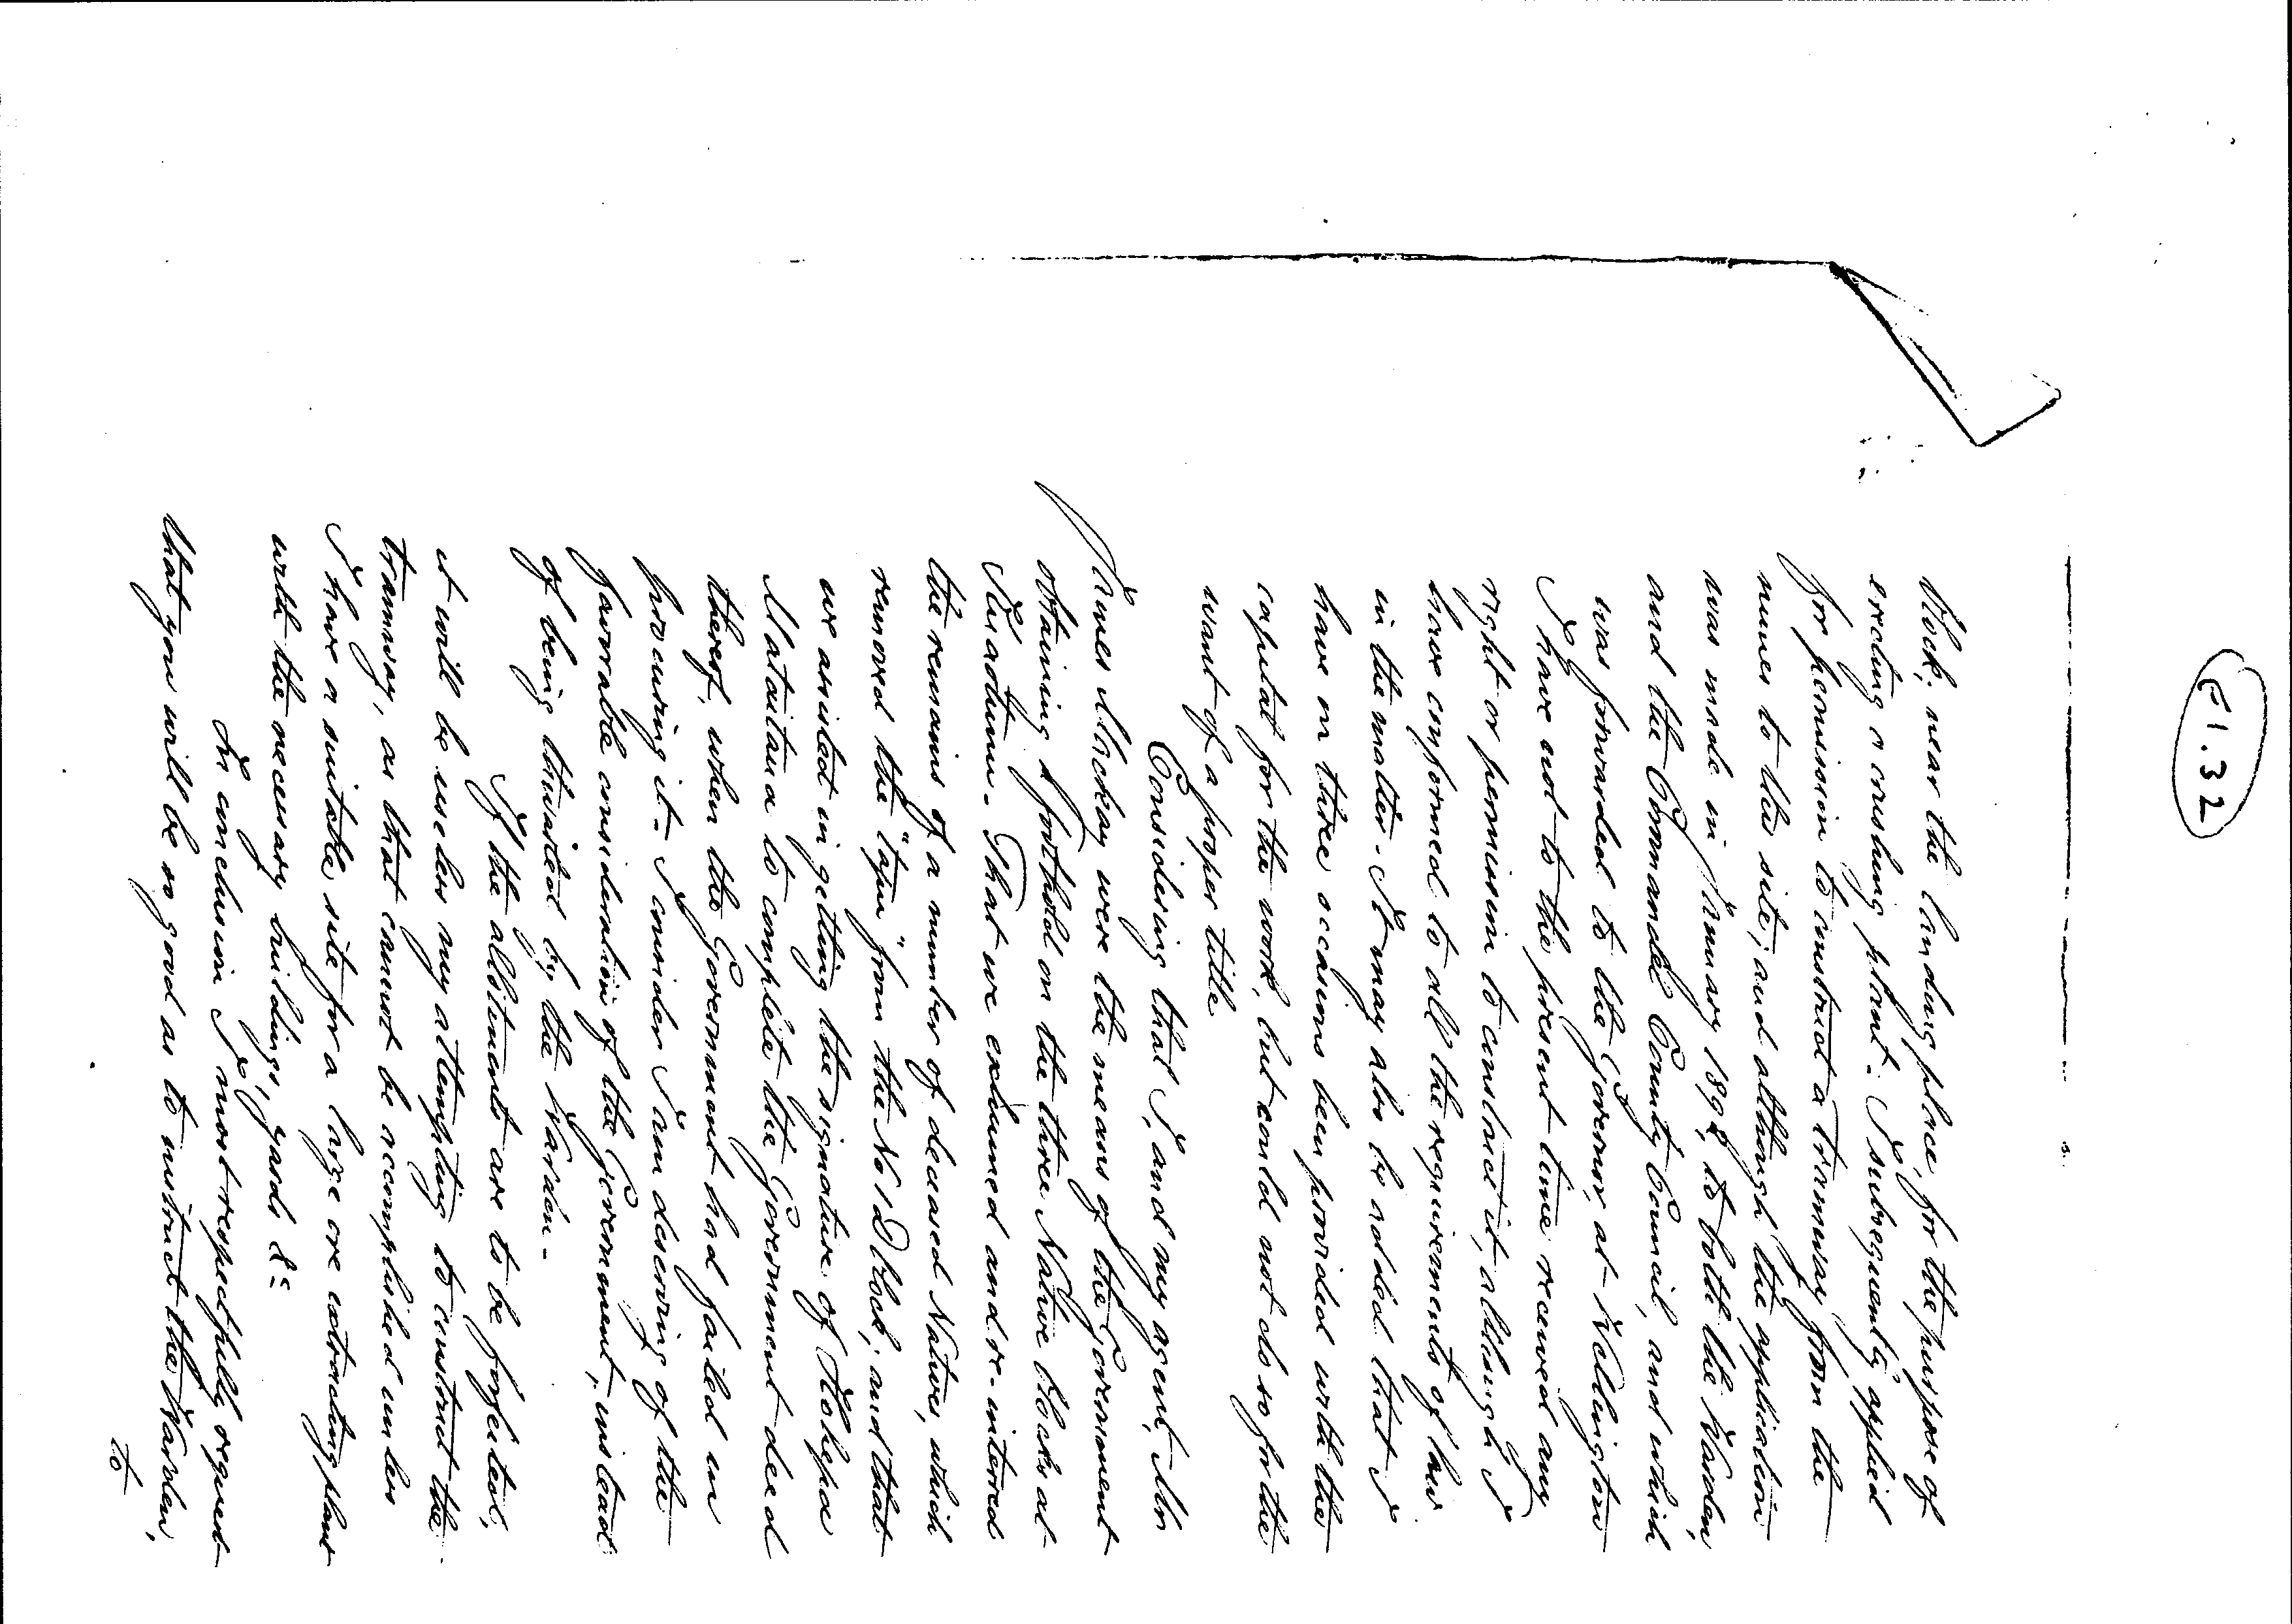 C1.32
block, near the landing place, for the purpose of
erecting a crushing plant. I subsequently applied
for permission to construct a tramway from the
mines to this site, and although the application
was made in January 1898, to both the Warden,
and the Coromandel County Council, and which
was forwarded to the Governor, at Wellington
I have not to the present time received any
right or permission to construct it, although I
have conformed to all the requirements of law
in the matter. It may also be added that I
have on three occasions been provided with the
capital for the work, but could not do so for the
want of a proper title
Considering that I, and my agent, Mr
James Mackay were the means of the Government
obtaining a foothold on the three Native Blocks at
Kuaotunu. That we exhumed and re-interred
the remains of a number of deceased Natives, which
removed the "tapu" from the No 1D block; and that
we assisted in getting the signature of
Mataitaua to complete the Government deed
thereof, when the Government had failed in
procuring it. I consider I am deserving of the
favorable consideration of the Government, instead
of being thwarted by the Warden.
If the allotments are to be forfeited,
it will be useless my attempting to construct the
tramway, as that cannot be accomplished unless
I have a suitable site for a large ore extracting plant
with the necessary buildings, yards &c
In conclusion I most respectfully request
that you will be so good as to instruct the Warden,
to